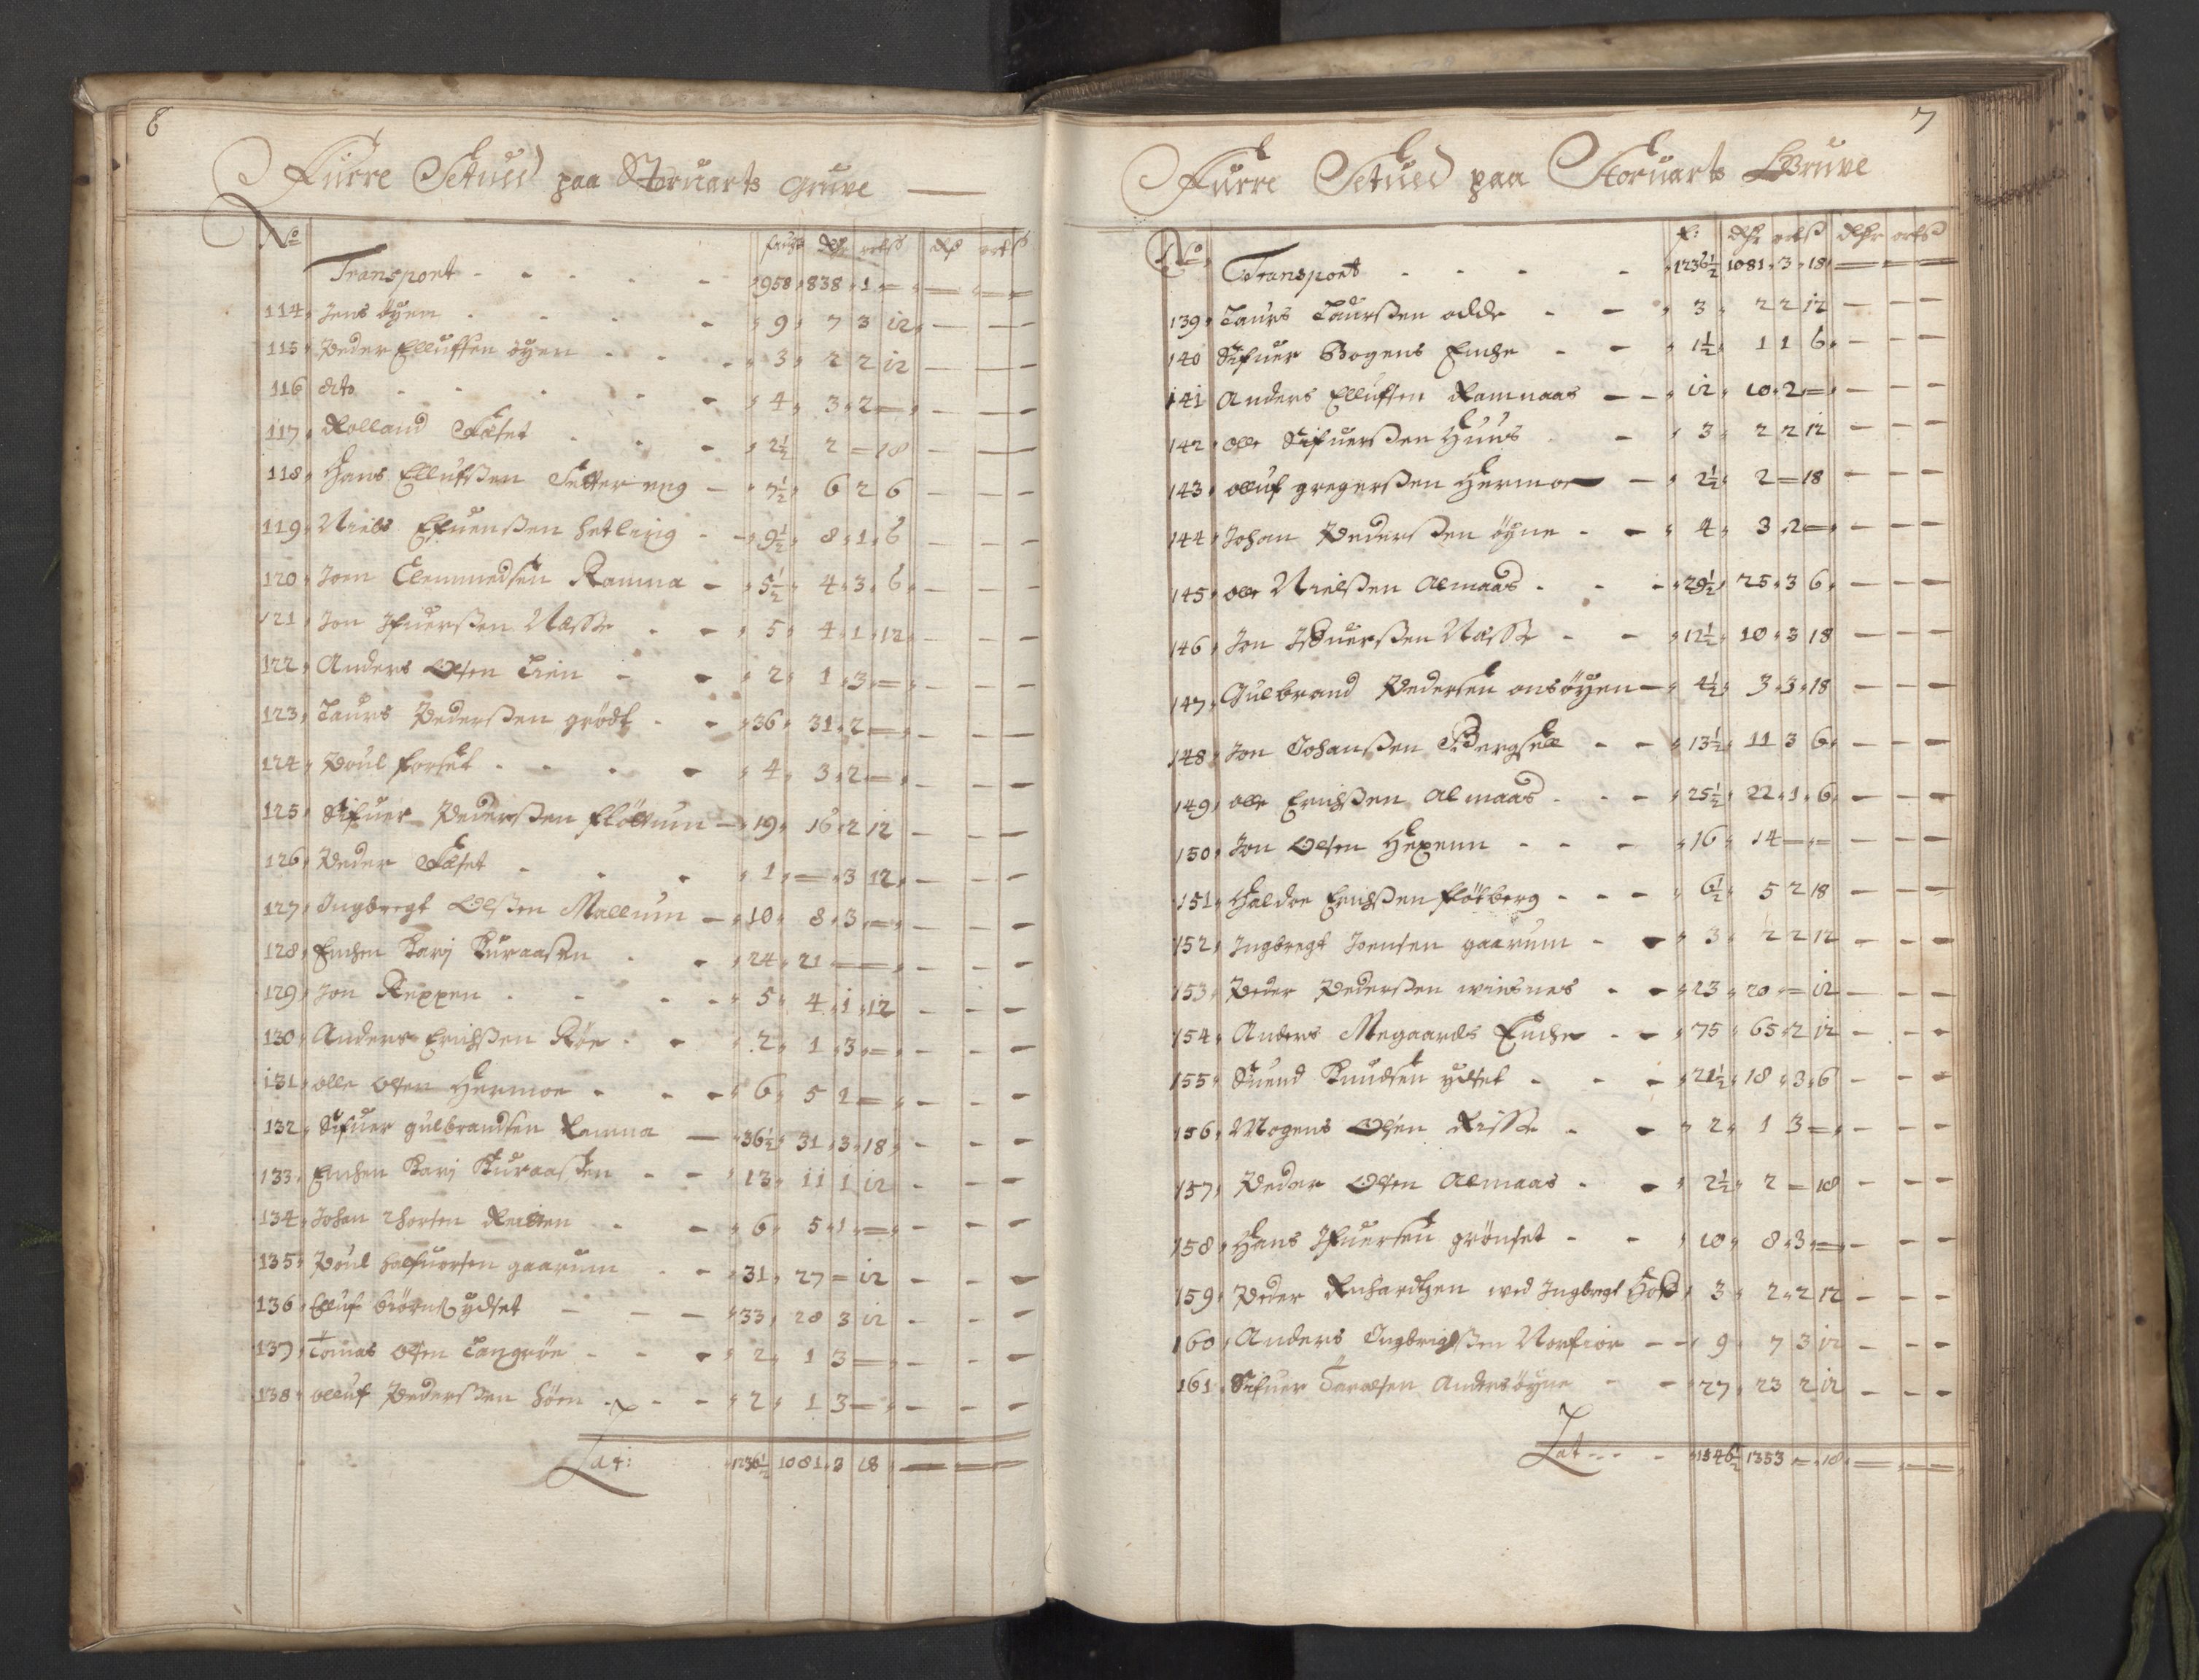 6
Furre Setued paa Storuarts Gruve
No faufn dlr ortß dlr ortß
Transport - - - - - 958 838 1 = = = =
114 Jens öyen - - - - 9 7 3 12 - - -
115 Peder Elluffsen öyen - - - 3 2 2 12 - - -
116 dito - - - - 4 3 2 = - - -
117 Rolland Fæset - - - 2½ 2 = 18 - - -
118 Hans Ellufsßen Setter eng - 7½ 6 2 6 - - -
119 Niels Efuenßen hetling - - 9½ 8 1 6 - - -
120 Joen Clemmedsen Ramma - 5½ 4 3 6 - - -
121 Jon Ifuerßen Næsse - - 5 4 1 12 - - -
122 Anders Olsen Lien - - 2 1 3 = - - -
123 Laurs Pederßen grödt - - 36 31 2 = - - -
124 Poul forset - - - - 4 3 2 = - - -
125 Sifuer Pederßen flöttum - 19 16 2 12 - - -
126 Peder Fæset - - - 1 = 3 12 - - -
127 Ingbregt Olßen Mallum - 10 8 3 = - - -
128 Enchen Karj Kuraasen - - 24 21 = = - - -
129 Jon Reppen - - - - 5 4 1 12 - - -
130 Anders Erichßen Röe - - 2 1 3 = - - -
131 olle olsen Hermoe - - - 6 5 1 = - - -
132 Sifuer gulbrandsen Ramma - 36½ 31 3 18 - - -
133 Enchen Karj Kuraasen - - 13 11 1 12 - - -
134 Johan Thorsen Reitten - - 6 5 1 = - - -
135 Poul halfuorsen gaarum - - 31 27 = 12 - - -
136 Elluf biörns ydset - - - 33 28 3 12 - - -
137 Tomas olsen Langröe - - - 2 1 3 = - - -
138 olluf Pederßen höen - - - 2 1 3 = - - -
Lat: 1236½ 1081 3 18 = = =
7
Furre Setued paa Storuarts Gruve
No f: dlr ortß dlr ortß
Transport - - - - 1236½ 1081 3 18 = = =
139 Laurs Laurßen odde - - 3 2 2 12 - - -
140 Sifuer Bogens Enche - - 1½ 1 1 6 - - -
141 Anders Ellufsen Ramnaas - - 12 10 2 = - - -
142 olle Sifuerßen Huus - 3 2 2 12 - - -
143 olluf gregerßen Hermoe - 2½ 2 = 18 - - -
144 Johan Pederßen öyne - - 4 3 2 = - - -
145 olle Nielßen Almaas - - - 29½ 25 3 6 - - -
146 Jon Ifuerßen Næsse - - 12½ 10 3 18 - - -
147 Gulbrand Pedersen onsöyen - 4½ 3 3 18 - - -
148 Jon Johanßen Bergsell - - 13½ 11 3 6 - - -
149 olle Erichßen Almaas - - - 25½ 22 1 6 - - -
150 Jon Olsen Hexemn - - - 16 14 = = - - -
151 Haldoe Erichßen flötberg - - - 6½ 5 2 18 - - -
152 Ingbregt Joensen gaarum - - 3 2 2 12 - - -
153 Peder Pederßen wiisnes - - 23 20 = 12 - - -
154 Anders Megaards Enche - - 75 65 2 12 - - -
155 Suend Knudsen ydset - - - 21½ 18 3 6 - - -
156 Mogens Olsen Risse - - 2 1 3 = - - -
157 Peder Olsen Almaas - - 2½ 2 = 18 - - -
158 Hans Ifuersen grönset - - 10 8 3 = - - -
159 Peder Richardtzen wed Ingbregt 3 2 2 12 - - -
160 Anders Ingbrigtßen Norfior - - 9 7 3 12 - - -
161 Sifuer Taralsen Andersöyne - - 27 23 2 12 - - -
Lat - - - 1546½ 1353 = 18 = = =